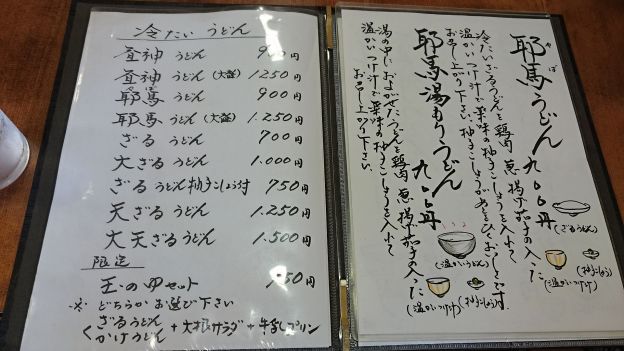 冷たい うどん
うどん 900円
うどん (大盛) 1.250円
耶馬 うどん 900円
耶馬 うどん (大盛) 1.250円
ざる うどん 700円
大ざる うどん 1.000円
ざる うどん 柚子こしょう付 750円
天ざる うどん 1.250円
大天ざる うどん 1.500円
限定
玉の ゆセット 50円
※ どちらか お選び下さい
ざるうどん
かけうどん + 大根サラダ + 牛乳プリン
耶馬うどん 九〇〇円
やば
冷たいざるうどんと鶏肉 葱 揚げ茄子の入った
温かいつけ汁で薬味の柚子こしょうを入れて
お召し上り下さい。柚子こしょうが
(ざるうどん)
(柚子こしょう)
(温かいつけ汁)
耶馬湯もりうどん 九〇〇円
湯の中におよがせたうどんと鶏肉 葱 揚げ茄子の入った
温かいつけ汁で薬味の柚子こしょうを入れて
お召し上り下さい。
(温かいうどん)
(柚子こしょう)
(温かいつけ汁)